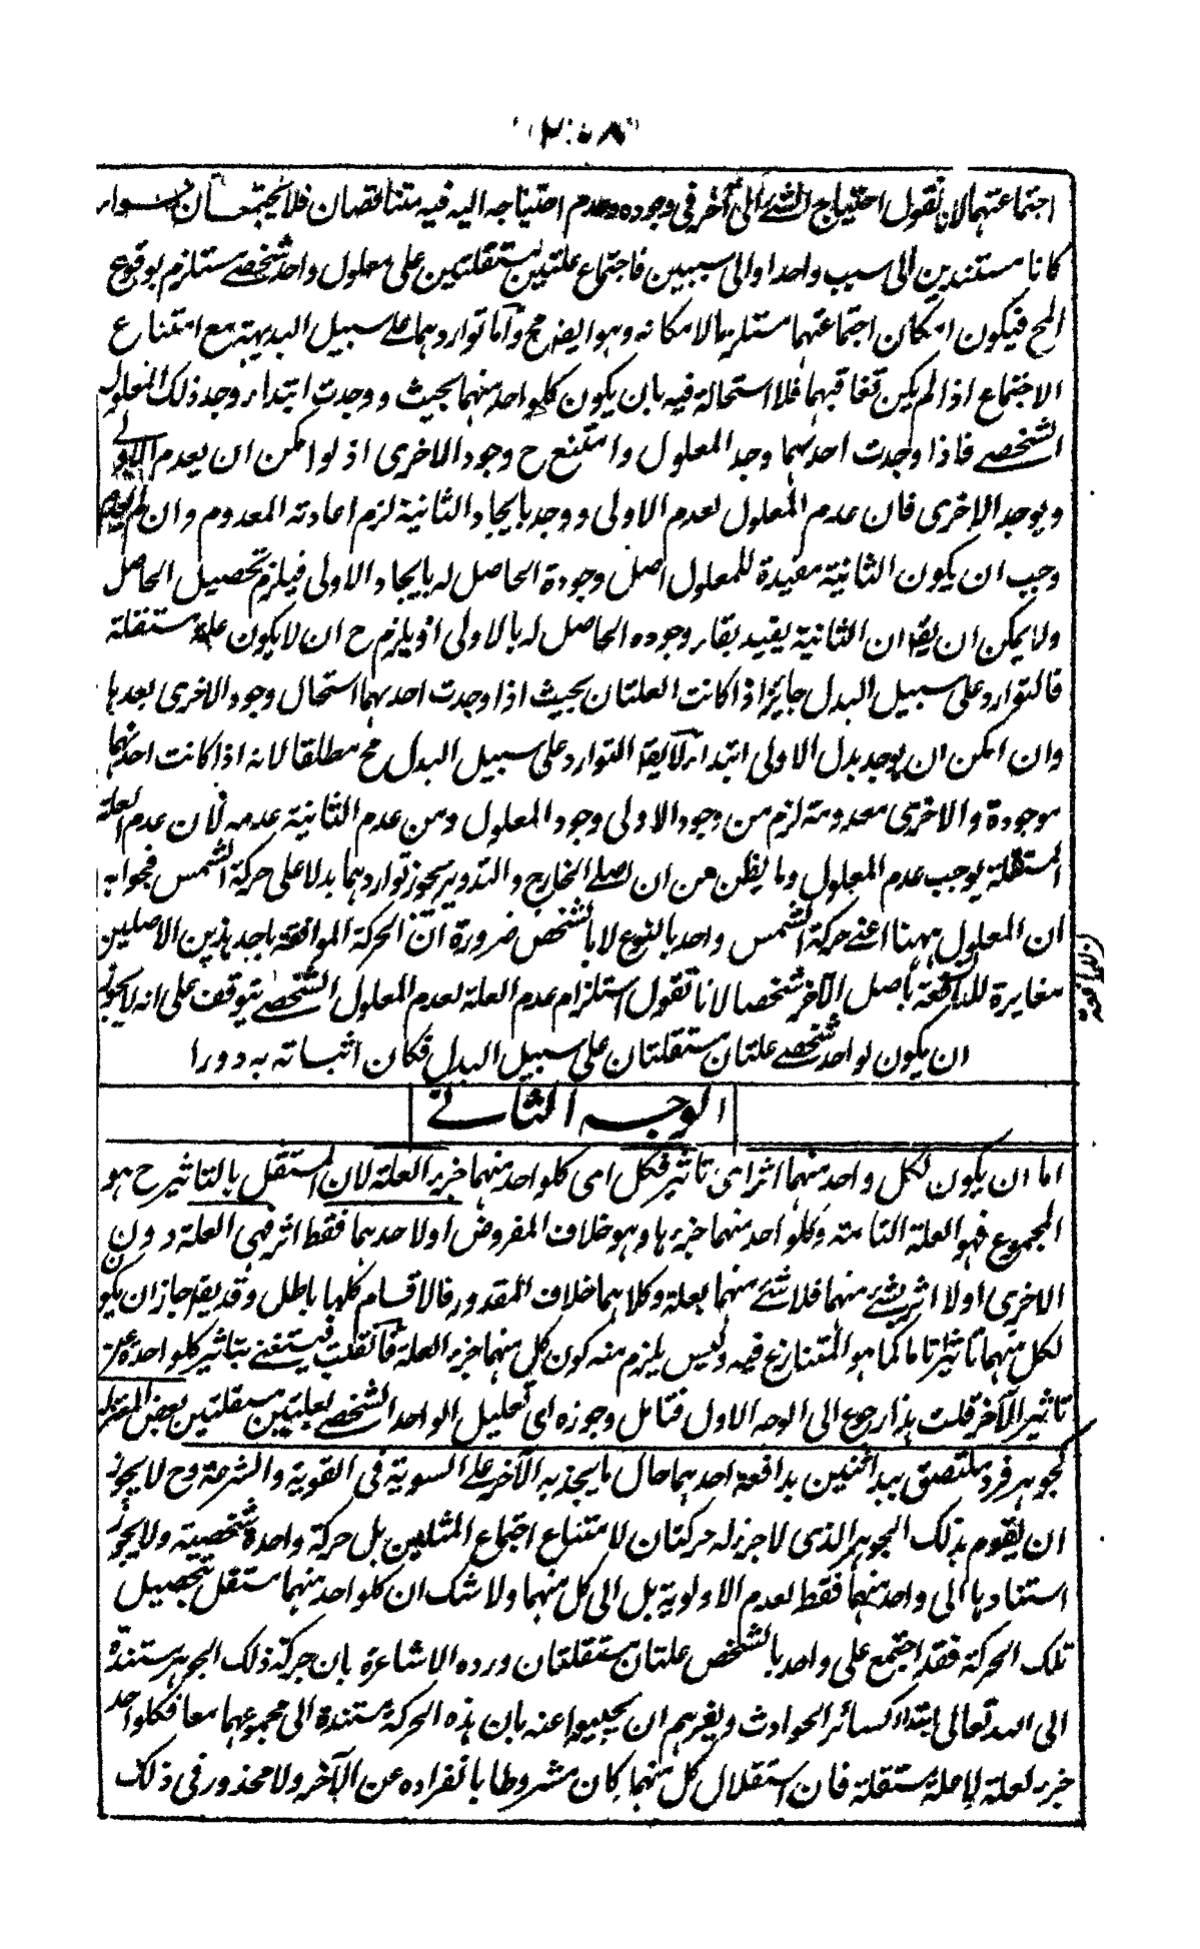 ٢٠٨
اجتماعهما لانا نقول احتياج الشئ الى آخر فى وجوده وعدم احتياجه اليه فيه متناقضان فلا يجتمعان سواء
كانا مستندين الى سبب واحد او الى سببين فاجتماع علتين مستقلتين على معلول واحد شخصے مستلزم لوقوع
المح فيكون امكان اجتماعهما مستلزما لامكانه وهو ايضا مح واما تواردهما على سبيل البديهة مع امتناع
الاجتماع اذا لم يكن تعاقبهما فلا استحالة فيه بان يكون كلواحد منهما بحيث ووجدت ابتداء وجد ذلك المعلول
الشخصے فاذا وجدت احدهما وجد المعلول وامتنع ح وجود الاخرى اذ لو امكن ان يعدم الاولے
ويوجد الاخرى فان عدم المعلول لعدم الاولى ووجد بايجاد الثانية لزم اعادته المعدوم وان لم يعدم
وجب ان يكون الثانية مفيدة للمعلول اصل وجودة الحاصل له بايجاد الاولى فيلزم تحصيل الحاصل
ولا يمكن ان يقا ان الثانية يفيد بقاء وجوده الحاصل له بالاولى اذ يلزم ح ان لا يكون علة مستقلة
فالتوارد على سبيل البدل جايز اذا كانت العلتان بحيث اذا وجدت احدهما استحال وجود الاخرى بعدها
وان امكن ان يوجد بدل الاولى ابتداء لا يقا التوارد على سبيل البدل مح مطلقا لانه اذا كانت احدهما
موجودة والاخرى معدومة لزم من وجود الاولى وجود المعلول ومن عدم الثانية عدمه لان عدم العلة
المستقلة يوجب عدم المعلول وما يظن من ان اصلے الخارج والتدوير يجوز تواردهما بدلا على حركة الشمس فجوابه
ان المعلول ههنا اعنے حركة الشمس واحد بالنوع لا بالشخص ضرورة ان الحركة الموافقة باحد هذين الاصلين
مغايرة للواقعة باصل الآخر شخصا لانا نقول استلزام عدم العلة لعدم المعلول الشخصے يتوقف على انه لا يجوز
ان يكون لواحد شخصے علتان مستقلتان على سبيل البدل فكان اثباته به دورا
الوجه الثانے
اما ان يكون لكل واحد منهما اثر اى تاثير فكل اى كلواحد منهما جزء العلة لان المستقل بالتاثير ح هو
المجموع فهو العلة التامة وكلواحد منهما جزءها وهو خلاف المفروض او لاحدهما فقط اثر فهى العلة دون
الاخرى او لا اثر بشئ منهما فلا شئے منهما بعلة وكلاهما خلاف المقدور فالاقسام كلها باطل وقد يقا جاز ان يكو
لكل منهما تاثيرا تاما كما هو المتنازع فيه وليس يلزم منه كون كل منهما جزء العلة فان قلت فيستغنے بتاثير كلواحدة عن
تاثير الآخر قلت هذا رجوع الى الوجه الاول فتامل وجوزه اى تعليل الواحد الشخصے بعلتين مستقلتين بعض المعتزلة
كجوهر فرد ملتصق بيد اثنين يدافعه احدهما حال ما يجذبه الآخر على السوية فى القوية والشرعة وح لا يجوز
ان يقوم بذلك الجوهر الذى لا جزء له حركتان لامتناع اجتماع المثلين بل حركة واحدة شخصية ولا يجوز
استنادها الى واحد منهما فقط لعدم الاولوية بل الى كل منهما ولا شك ان كلواحد منهما مستقل بتحصيل
تلك الحركة فقد اجتمع على واحد بالشخص علتان مستقلتان ورده الاشاعرة بان حركة ذلك الجوهر مستندة
الى الله تعالى ابتداء كسائر الحوادث ولغيرهم ان يجيبوا عنه بان هذه الحركة مستندة الى مجموعهما معا فكلواحد
جزء لعلة لا علة مستقلة فان استقلال كل منهما كان مشروطا بانفراده عن الآخر ولا محذور فى ذلك